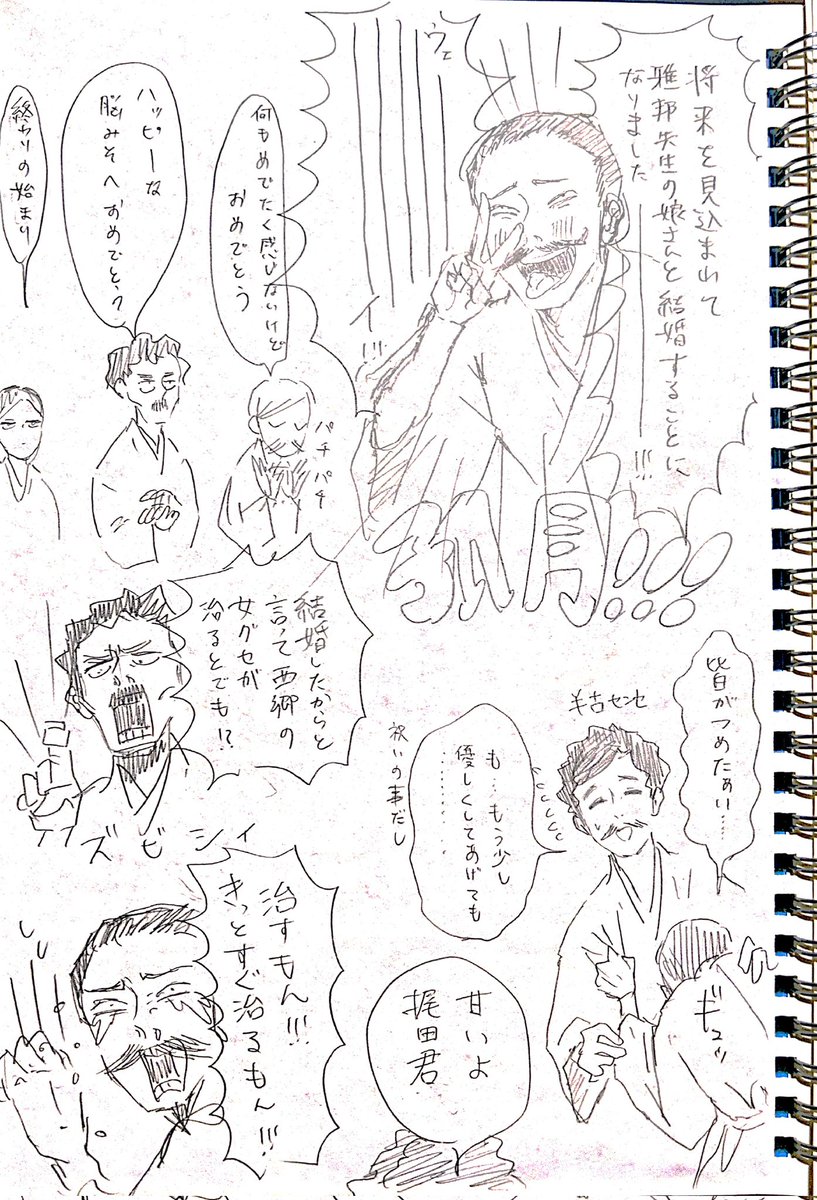 将来を見込まれて
雅邦先生の娘さんと結婚することに
なりました
!!!
ウェ
イ!!!
孤月
何もめでたく感じないけど
おめでとう
パチパチ
ハッピーな
脳みそへおめでとう
終わりの始まり
結婚したからと
言って西郷の
女グセが
治るとでも!?
ズビシィ
皆がつめたぁい……
半古センセ
も…もう少し
優しくしてあげても
………
祝いの事だし
ギュッ
治すもん!!!
きっとすぐ治るもん!!!
甘いよ
梶田君